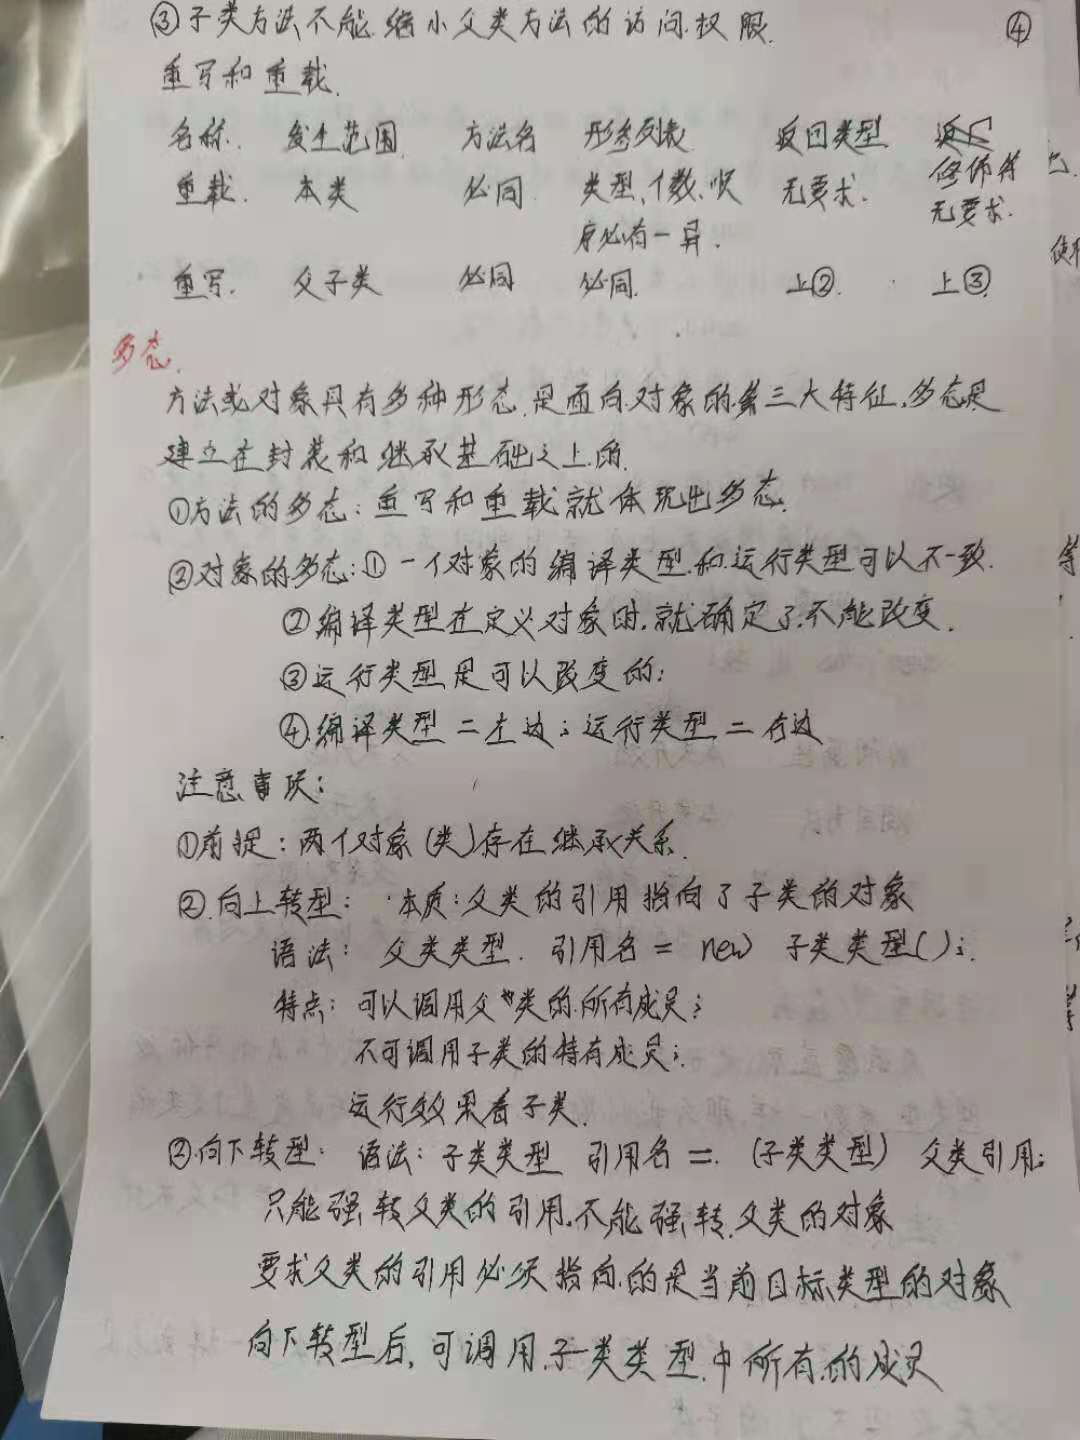 ③子类方法不能缩小父类方法的访问权限. ④
重写和重载.
名称. 发生范围 方法名 形参列表 返回类型 修饰符
重载. 本类 必同 类型、个数、顺 无要求. 无要求.
序必有一异.
重写. 父子类 必同 必同. 上②. 上③
多态.
方法或对象具有多种形态,是面向对象的第三大特征,多态是
建立在封装和继承基础之上的.
①方法的多态:重写和重载就体现出多态.
②对象的多态:①一个对象的编译类型和运行类型可以不一致.
②编译类型在定义对象时,就确定了,不能改变.
③运行类型是可以改变的;
④编译类型=左边;运行类型=右边
注意事项:
①前提:两个对象(类)存在继承关系.
②向上转型: 本质:父类的引用指向了子类的对象
语法: 父类类型. 引用名 = new 子类类型();
特点: 可以调用父类的所有成员;
不可调用子类的特有成员;
运行效果看子类.
③向下转型: 语法:子类类型 引用名 = (子类类型) 父类引用;
只能强转父类的引用,不能强转父类的对象
要求父类的引用必须指向的是当前目标类型的对象
向下转型后,可调用子类类型中所有的成员